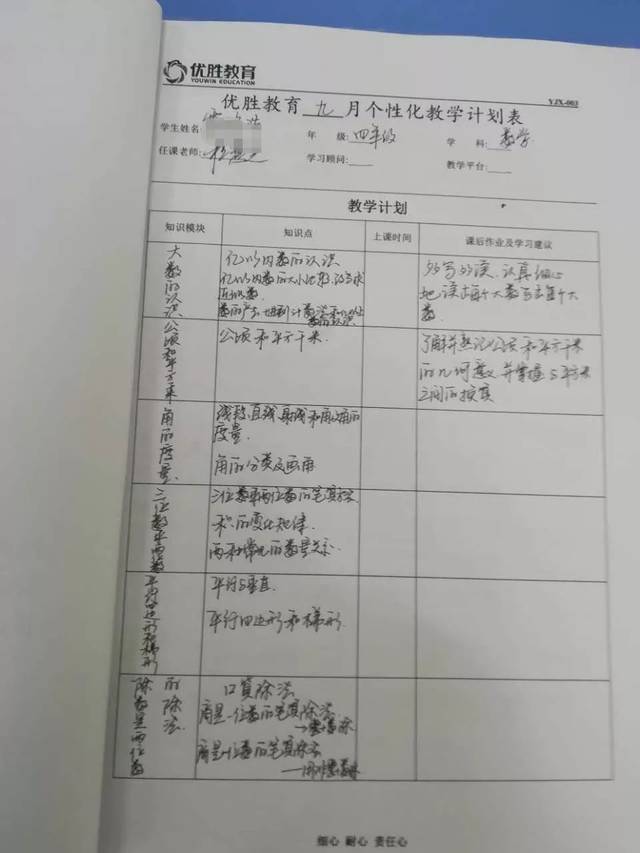 优胜教育
YOUWIN EDUCATION
YJX-003
优胜教育 九 月个性化教学计划表
学生姓名:
年 级: 四年级
学 科: 数学
任课老师:
学习顾问:
教学平台:
教学计划
知识模块 知识点 上课时间 课后作业及学习建议
大数的认识
亿以内数的认识
亿以内数的大小比较
近似数
数的产生
多写多读、认真细心
地读每个大数写每个大
数
公顷和平方千米
公顷和平方千米
了解并熟记公顷和平方千米
的几何意义并掌握与平方米
之间的换算
角的度量
线段、直线、射线和角、角的
度量
角的分类及画角
三位数乘两位数
三位数乘两位数的笔算
积的变化规律
两种常见的数量关系
平行四边形和梯形
平行与垂直
平行四边形和梯形
除数是两位数的除法
口算除法
商是一位数的笔算除法
商是
细心 耐心 责任心